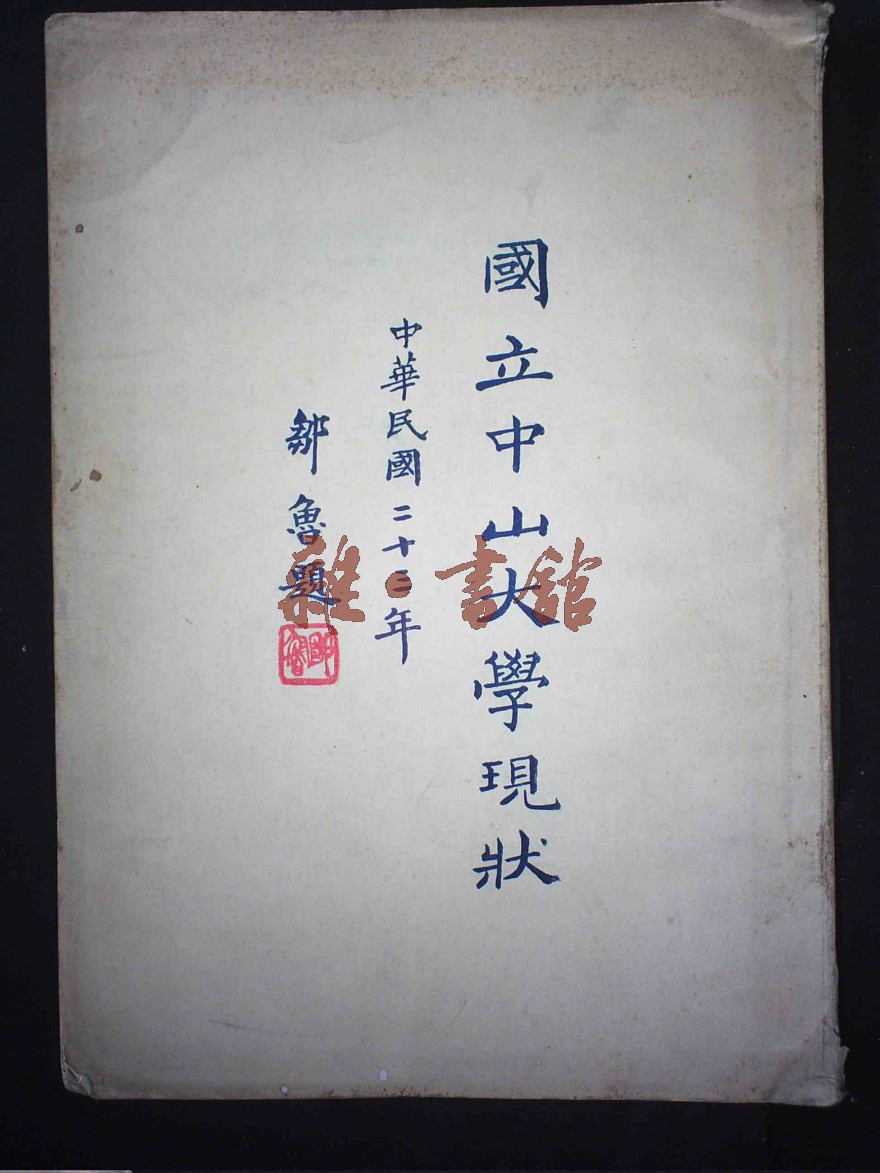 國立中山大學現狀
中華民國二十三年
鄒魯題
鄒魯
雜·書館